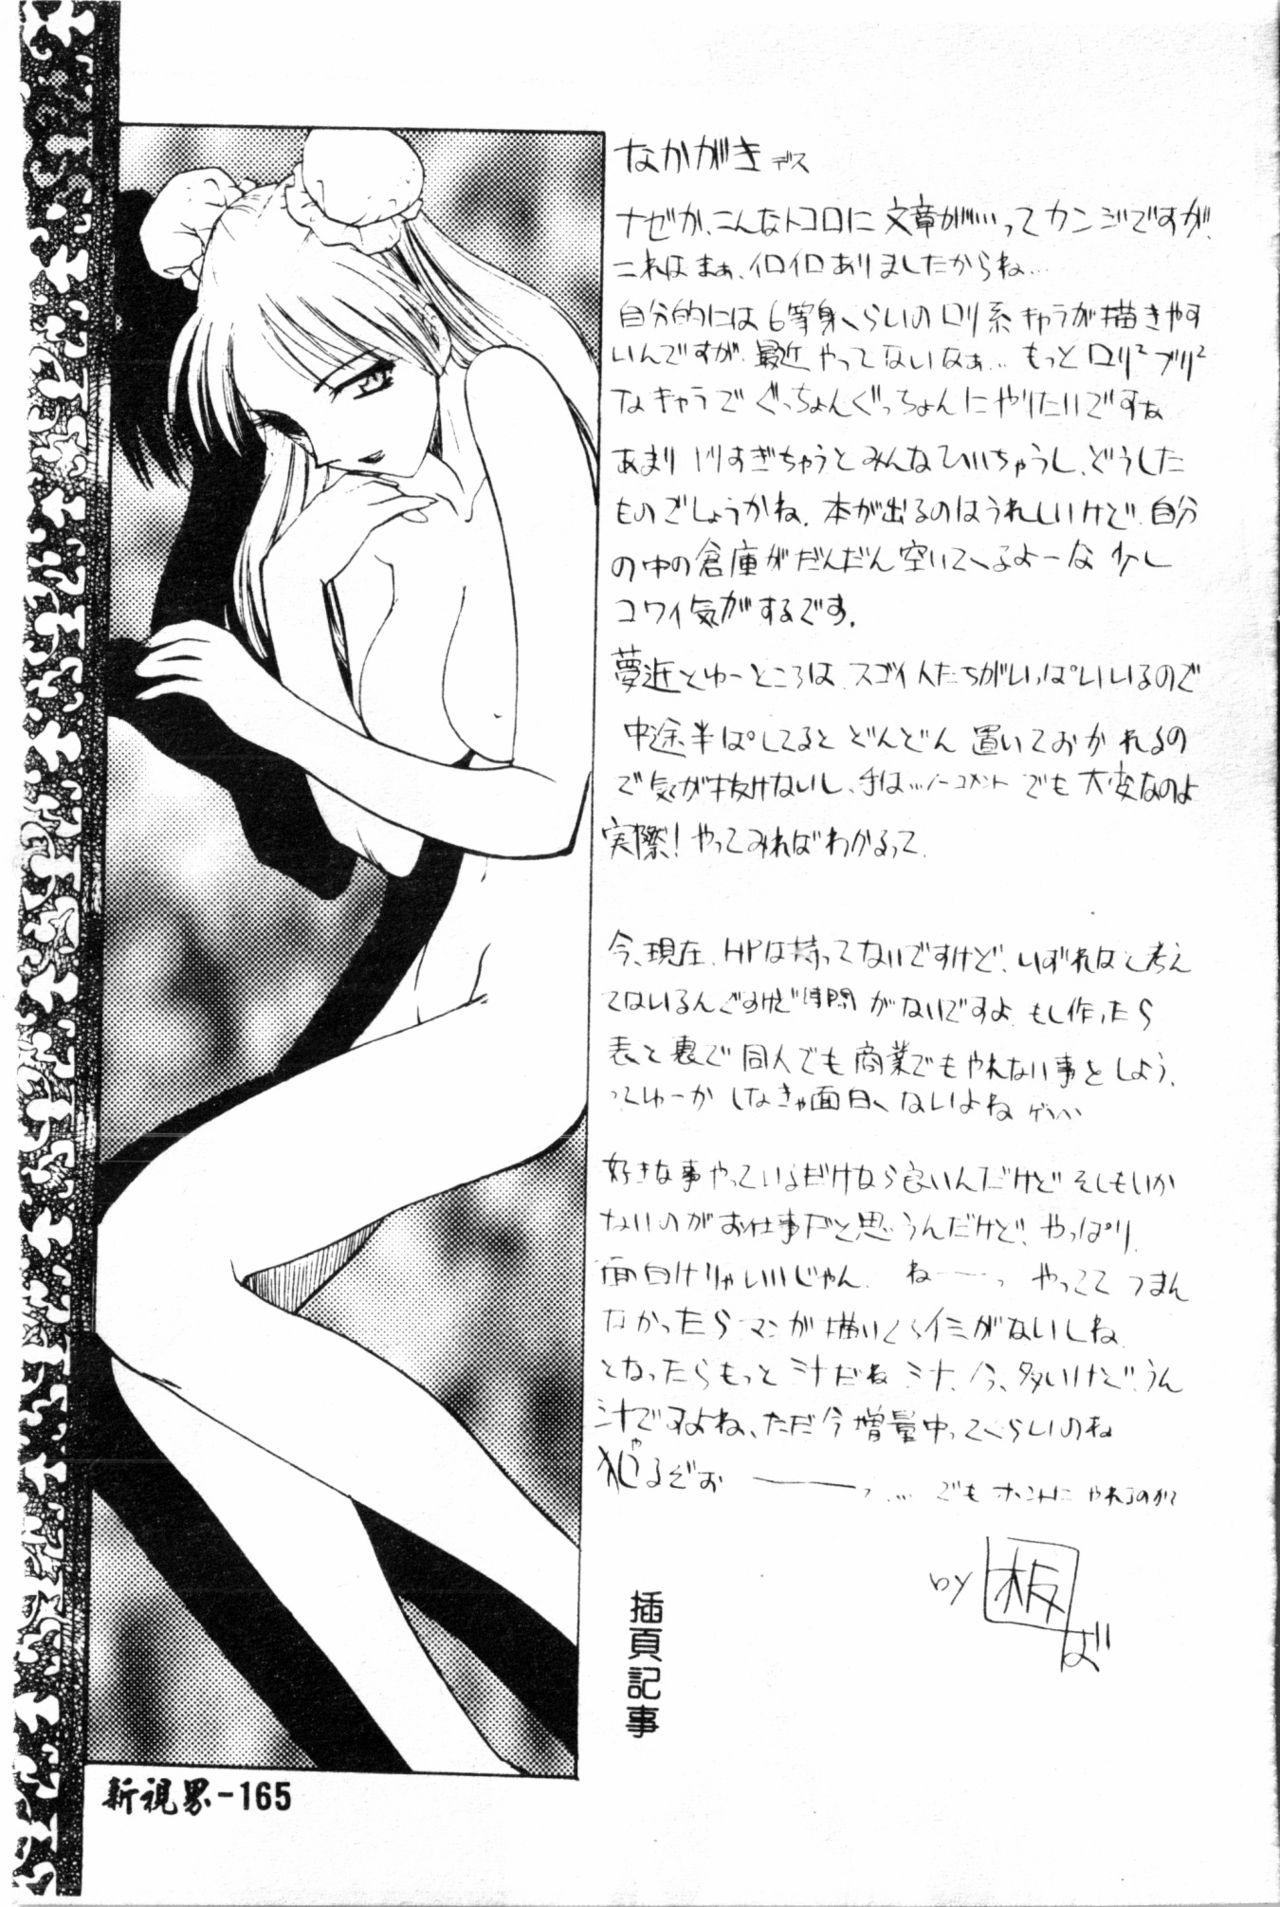 なかがき デス
ナゼか、こんなトコロに 文章が…ってカンジですが、
これはまぁ、イロイロありましたからね…
自分的には6等身くらいのロリ系キャラが描きやす
いんですが、最近やってないなぁ… もっとロリ²プリ²
なキャラでぐっちょんぐっちょんにやりたいですぁ
あまり すぎちゃうとみんなひいちゃうし、どうした
ものでしょうかね、本が出るのはうれしいけど、自分
の中の倉庫がだんだん空いてくるよーな 少し
コワイ気がするです。
夢近とゆーところは、スゴイ人たちがいっぱいいるので
中途半ぱしてると どんどん 置いておかれるの
で気が抜けないし、手は…ノーコメント でも 大変なのよ
実際！やってみればわかるって。
今、現在、HPは持ってないですけど、いずれはと考え
てはいるんですけど 時間がないですよ もし作ったら
表と裏で 同人でも 商業でもやれない事をしよう、
ってゆーか しなきゃ面白くないよね
好きな事やっているだけなら良いんだけど そしもいか
ないのがお仕事だと思うんだけど、やっぱり
面白けりゃいいじゃん、 ねーーっ やってて つまん
なかったら マンガ描いてくイミがないしね
となったらもっと 汁だね 汁、今、多いけど、うん
汁ですよね、ただ今増量中ってくらいのね
るぞお ――っ… でも ホントに やれるのか
by 板 ば
插頁記事
新視界-165